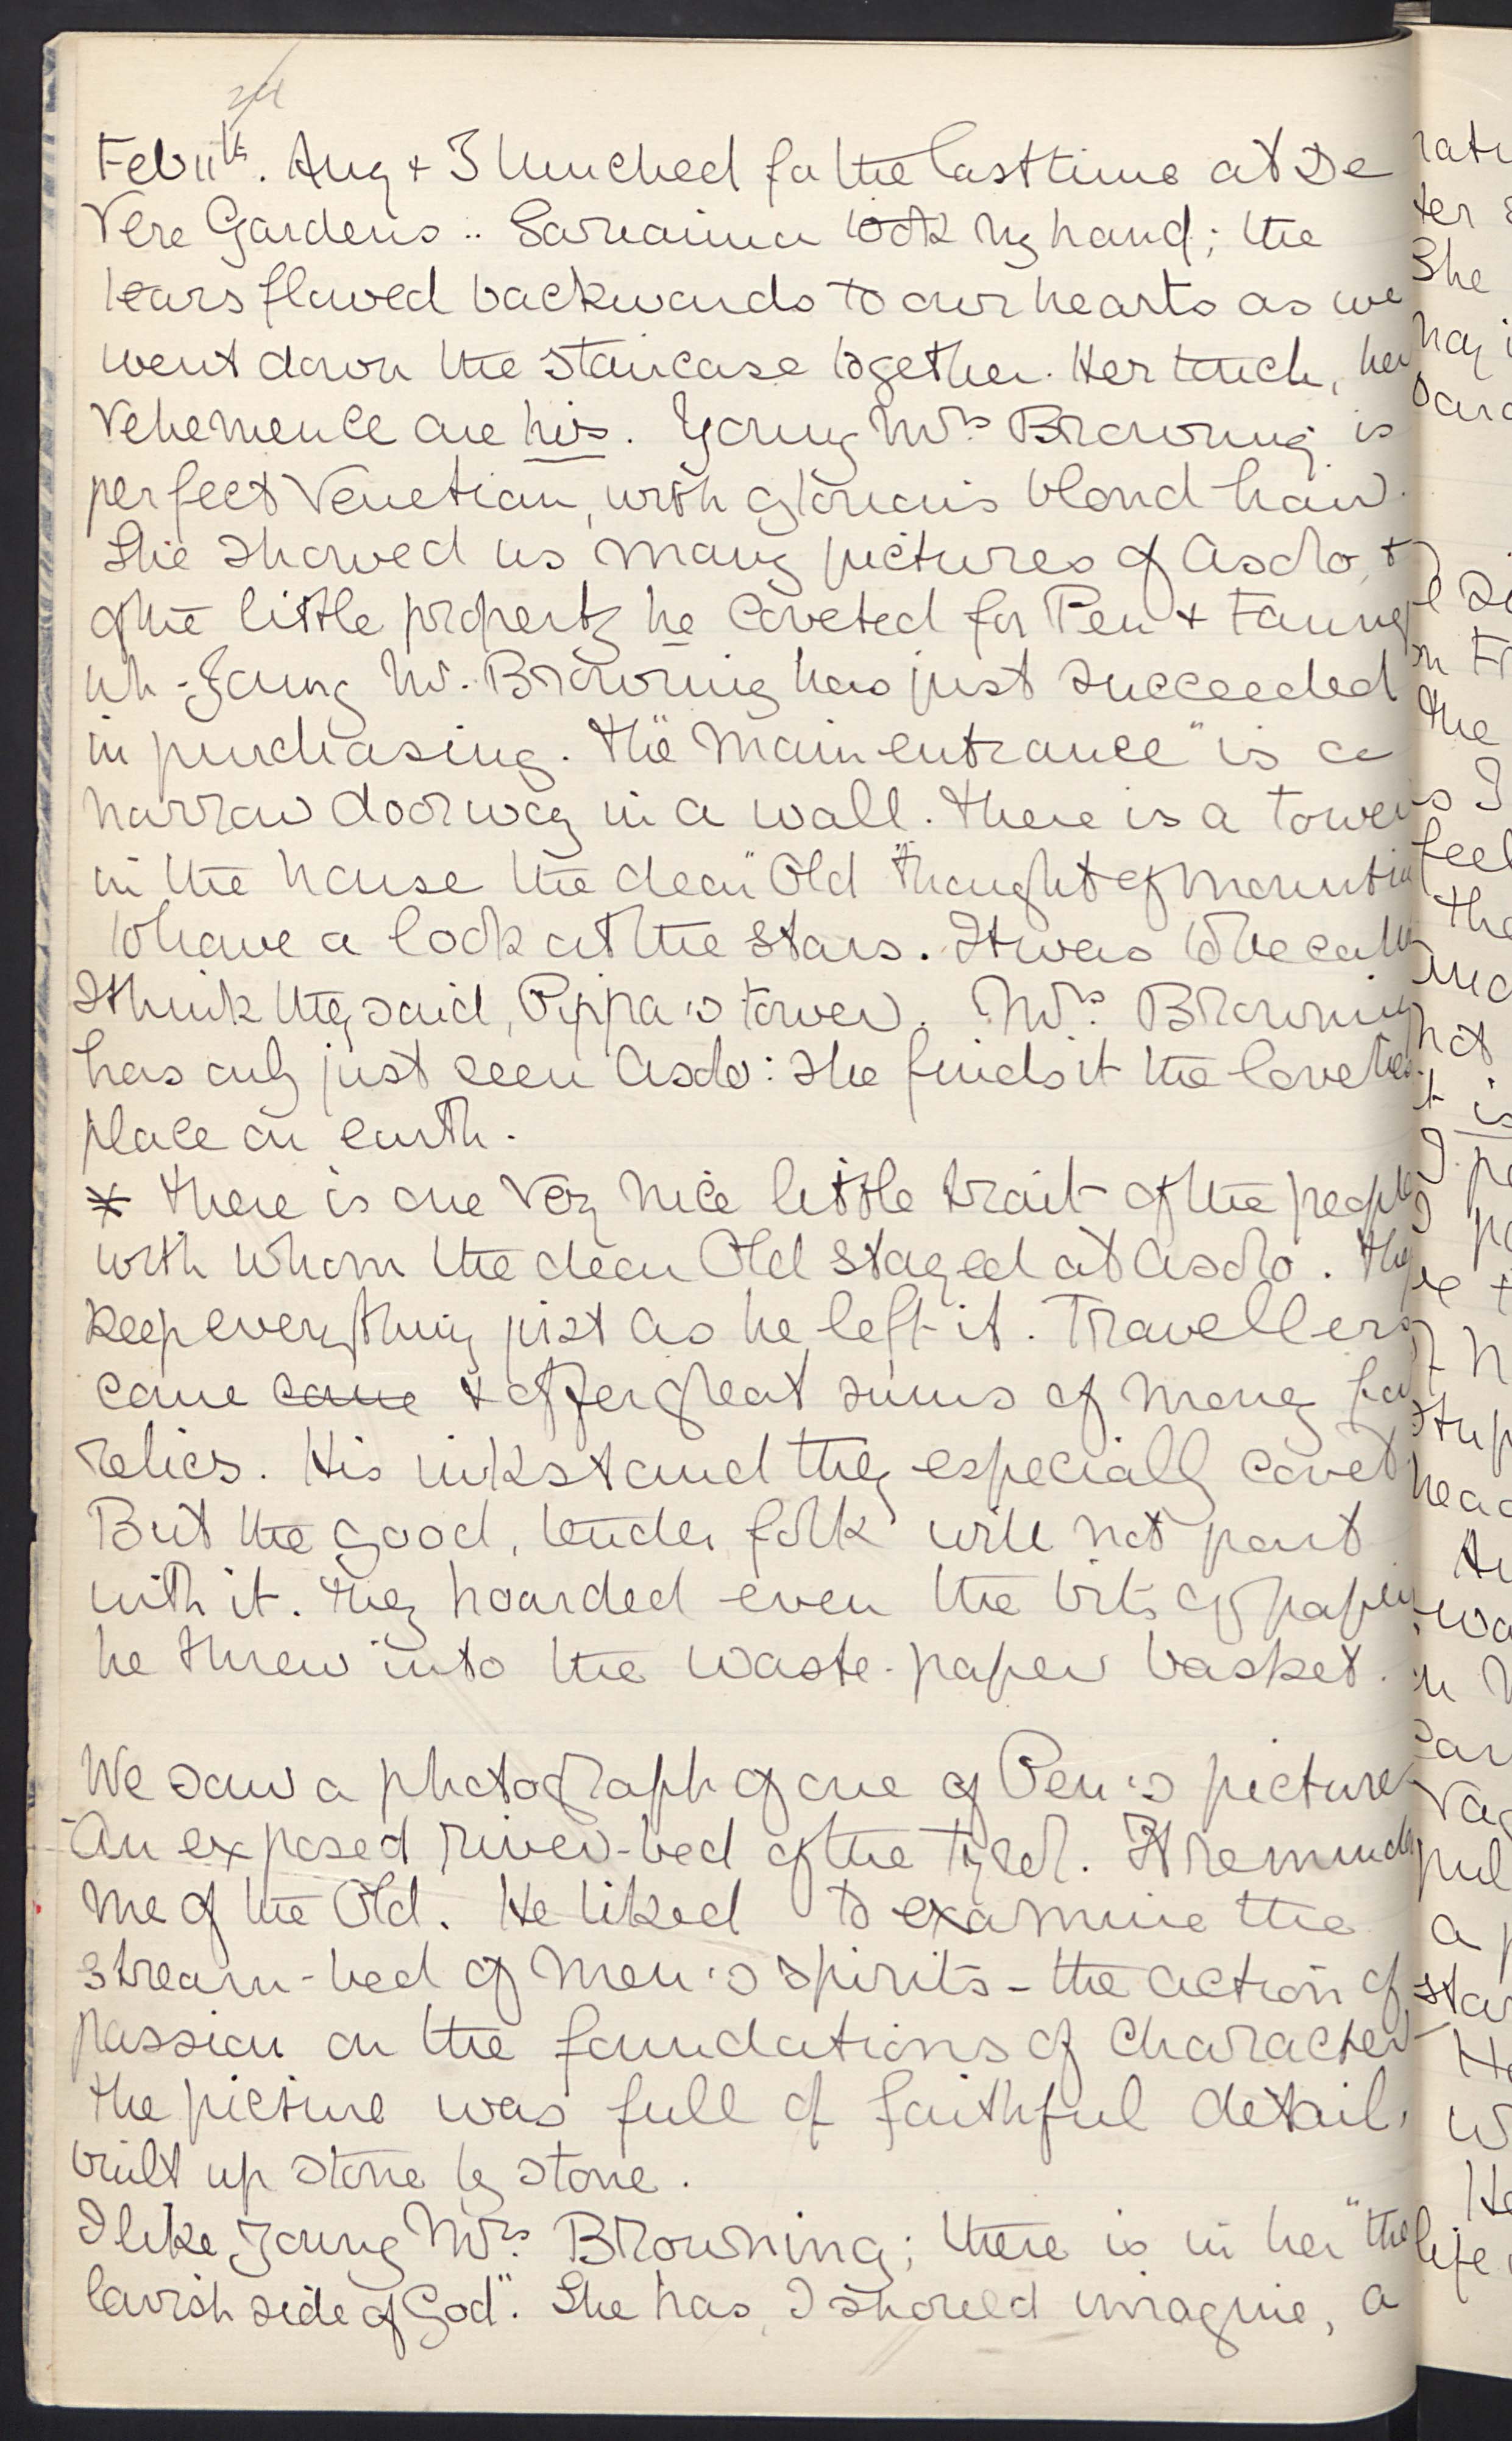 24
Feb 11th. Amy & I lunched for the last time at De
Vere Gardens .. Sarianna took my hand; the
tears flowed backwards to our hearts as we
went down the staircase together. Her touch, her
vehemence are his. Young Mrs Browning is
perfect Venetian, with glorious blond hair.
She showed us many pictures of Asolo, &
of the little property he coveted for Pen & Fanny
wh - Young Mr. Browning has just succeeded
in purchasing. The "main entrance" is a
narrow doorway in a wall. There is a tower
in the house the dear "Old" thought of mounting
to have a look at the stars. It was to be called
I think they said, Pippa's tower. Mrs. Browning
has only just seen Asolo: she finds it the loveliest
place on earth.
* There is one very nice little trait of the people
with whom the dear Old stayed at Asolo. They
keep everything just as he left it. Travellers
come come & offer great sums of money for
relics. His inkstand they especially covet.
But the good, tender folk will not part
with it. They hoarded even the bits of paper
he threw into the waste-paper basket.
We saw a photograph of one of Pen's pictures
An exposed river-bed of the Tyrol. It reminds
me of the Old. He liked to examine the
stream-bed of men's spirits - the action of
passion on the foundations of character
The picture was full of faithful detail,
built up stone by stone.
I like young Mrs. Browning; there is in her "the
lavish side of God". She has, I should imagine, a